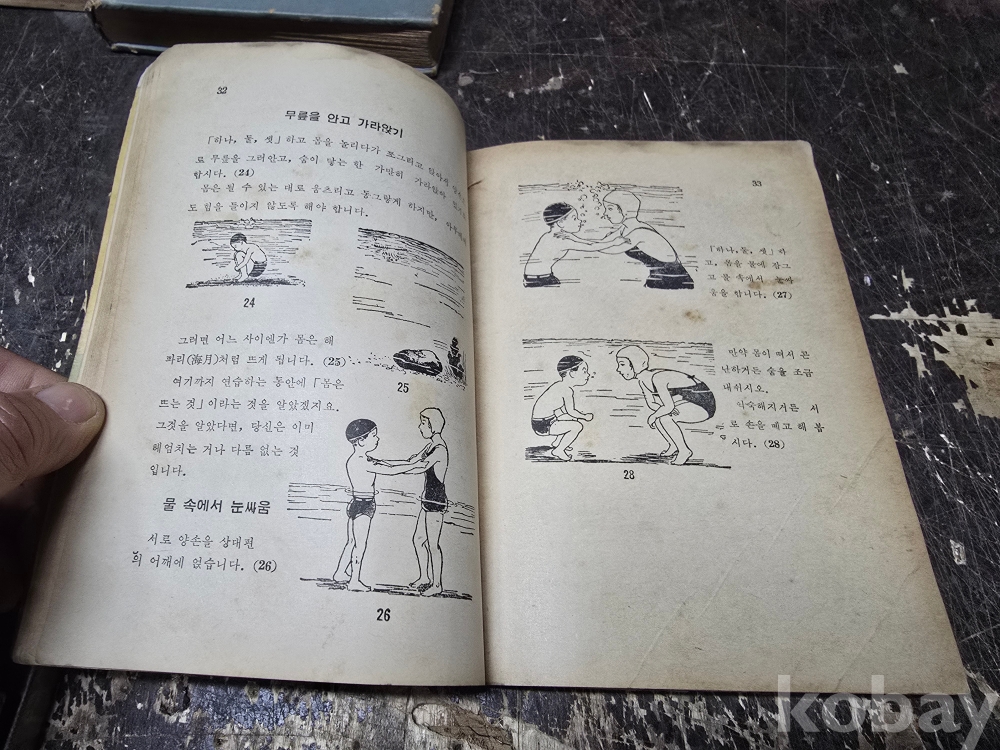 32
무릎을 안고 가라앉기
「하나, 둘, 셋」하고 몸을 놀리다가 쪼그리고
로 무릎을 그러안고, 숨이 닿는 한 가만히 가라앉아
합시다. (24)
몸은 될 수 있는 대로 움츠리고 동그랗게 하지만,
도 힘을 들이지 않도록 해야 합니다.
24
그러면 어느 사이엔가 몸은 해
파리(海月)처럼 뜨게 됩니다. (25)
25
여기까지 연습하는 동안에「몸은
뜨는 것」이라는 것을 알았겠지요.
그것을 알았다면, 당신은 이미
헤엄치는 거나 다름 없는 것
입니다.
물 속에서 눈싸움
서로 양손을 상대편
의 어깨에 얹습니다. (26)
26
33
「하나, 둘, 셋」하
고, 몸을 물에 잠그
고 물 속에서 눈싸
움을 합니다. (27)
만약 몸이 떠서 곤
난하거든 숨을 조금
내쉬시오.
익숙해지거든 서
로 손을 떼고 해 봅
시다. (28)
28
kobay